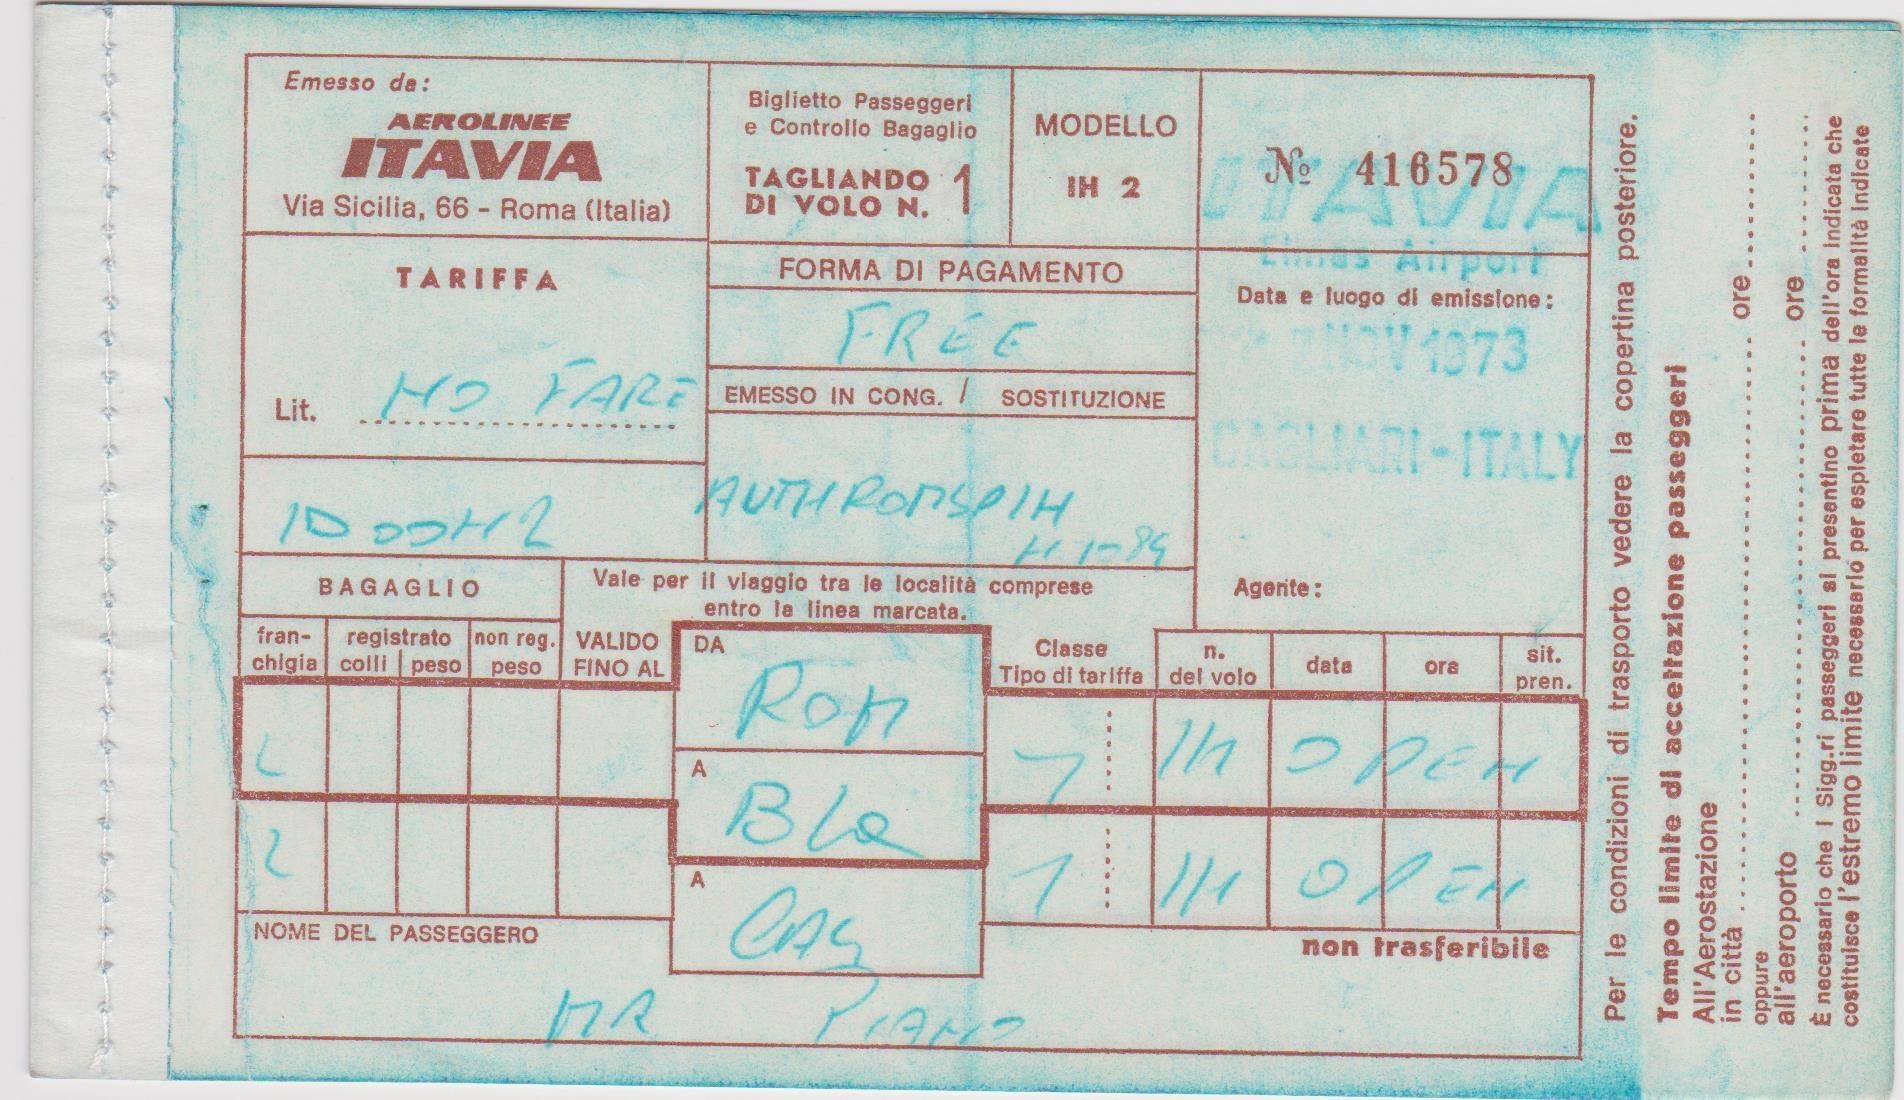 Emesso da:
AEROLINEE
ITAVIA
Via Sicilia, 66 - Roma (Italia)
Biglietto Passeggeri
e Controllo Bagaglio
TAGLIANDO
DI VOLO N. 1
MODELLO
IH 2
№ 416578
ITAVIA
Elmas Airport
TARIFFA
Lit. NO FARE
FORMA DI PAGAMENTO
FREE
EMESSO IN CONG. / SOSTITUZIONE
Data e luogo di emissione:
NOV 1973
CAGLIARI - ITALY
Agente:
ID 00 N2
AUTH ROMSPIH
BAGAGLIO
Vale per il viaggio tra le località comprese
entro la linea marcata.
fran-
chigia
registrato
colli peso
non reg.
peso
VALIDO
FINO AL
DA
ROM
Classe
Tipo di tariffa
n.
del volo
data
ora
sit.
pren.
A
BLQ
Y IH OPEN
A
CAG
Y IH OPEN
NOME DEL PASSEGGERO
non trasferibile
MR PIANO
Per le condizioni di trasporto vedere la copertina posteriore.
Tempo limite di accettazione passeggeri
All'Aerostazione
in città ore
oppure
all'aeroporto ore
È necessario che i Sigg.ri passeggeri si presentino prima dell'ora indicata che
costituisce l'estremo limite necessario per espletare tutte le formalità indicate